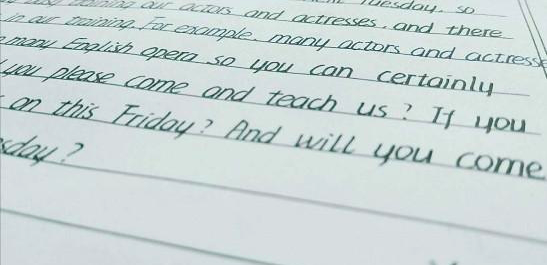 Tuesday, so
training our actors and actresses, and there
in our training. For example, many actors and actresse
many English opera so you can certainly
you please come and teach us? If you
on this Friday? And will you come
sday?